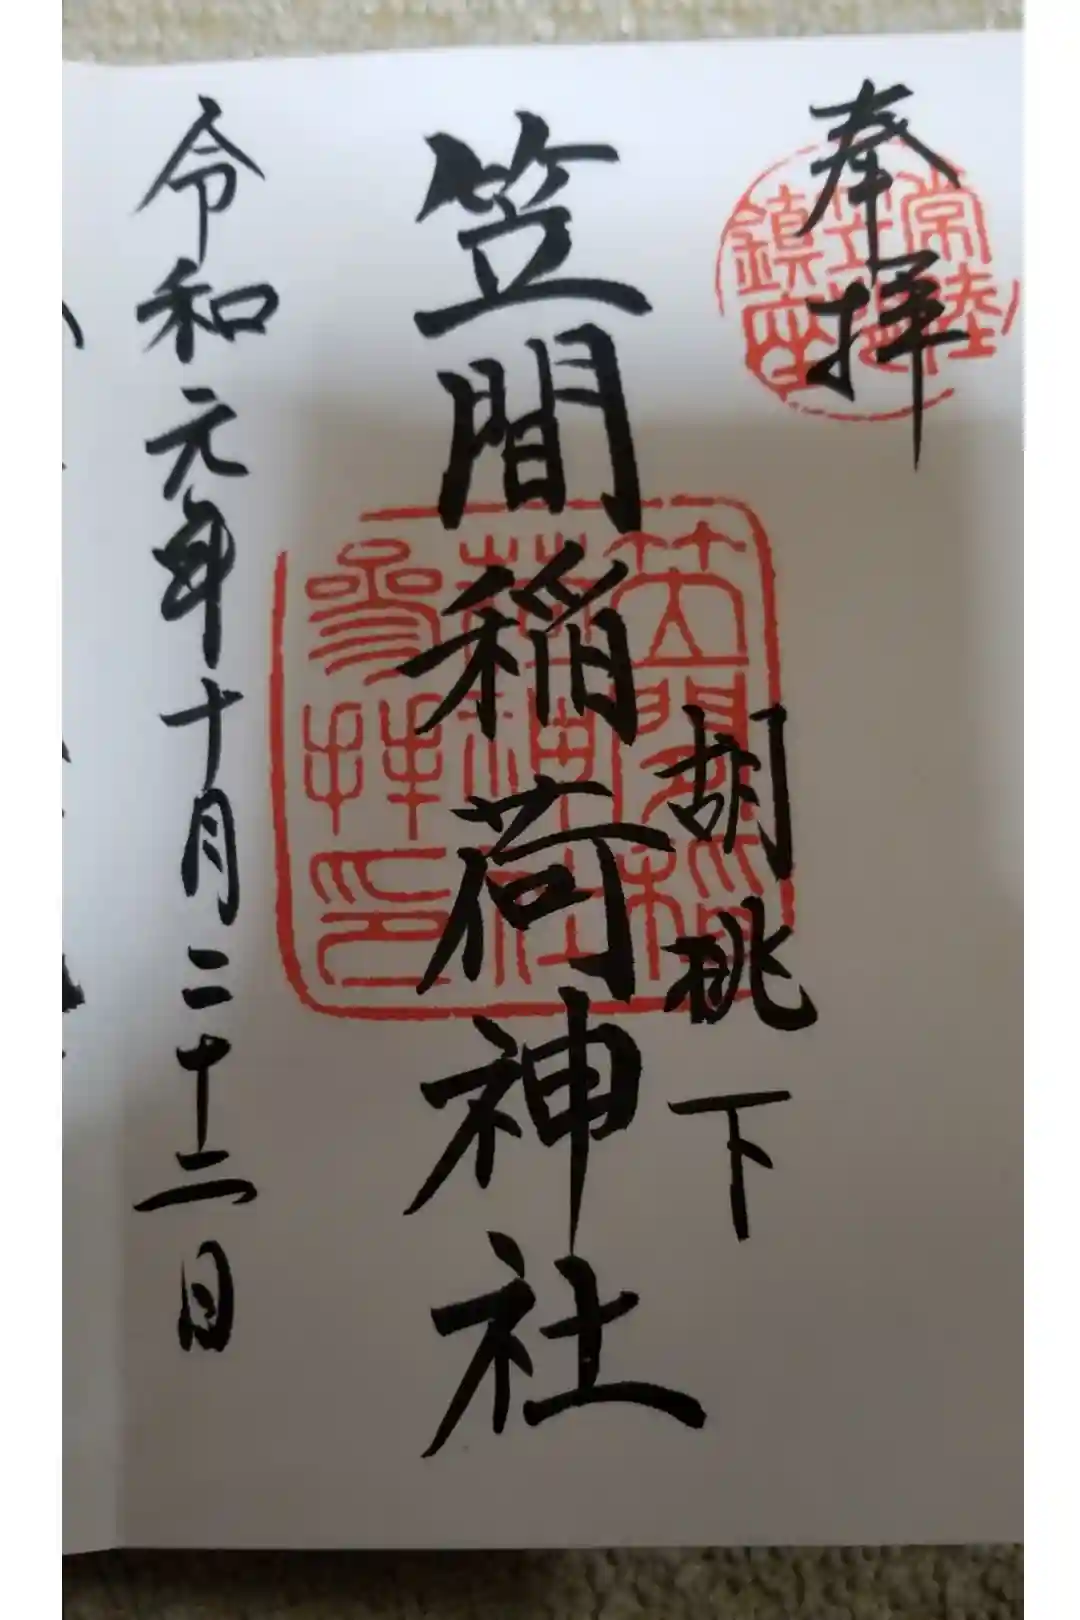 奉拝
常陸
笠間
鎮座
胡桃下
笠間稲荷神社
笠間稲
荷神社
参拝印
令和元年十月二十二日